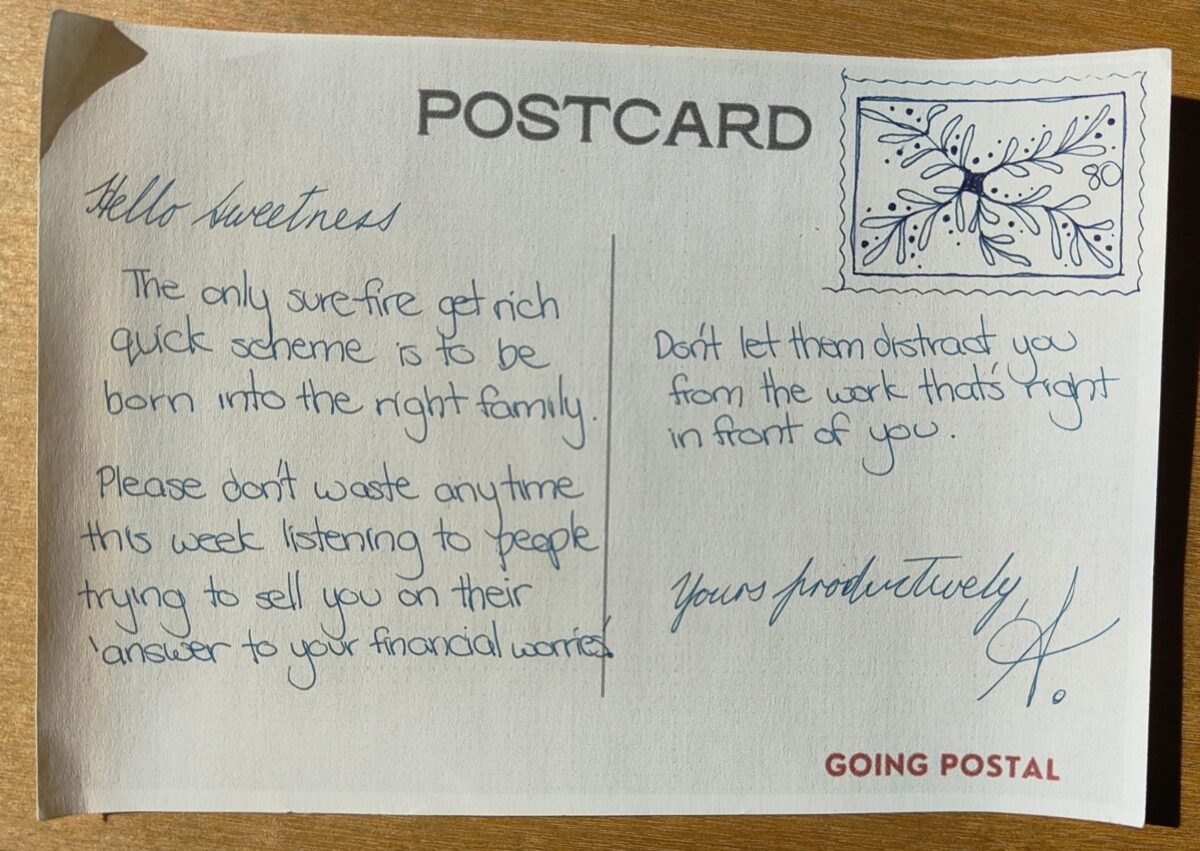 POSTCARD
80
Hello Sweetness
The only sure-fire get rich
quick scheme is to be
born into the right family.
Please don't waste anytime
this week listening to people
trying to sell you on their
'answer to your financial worries'.
Don't let them distract you
from the work that's right
in front of you.
Yours productively,
A.
GOING POSTAL